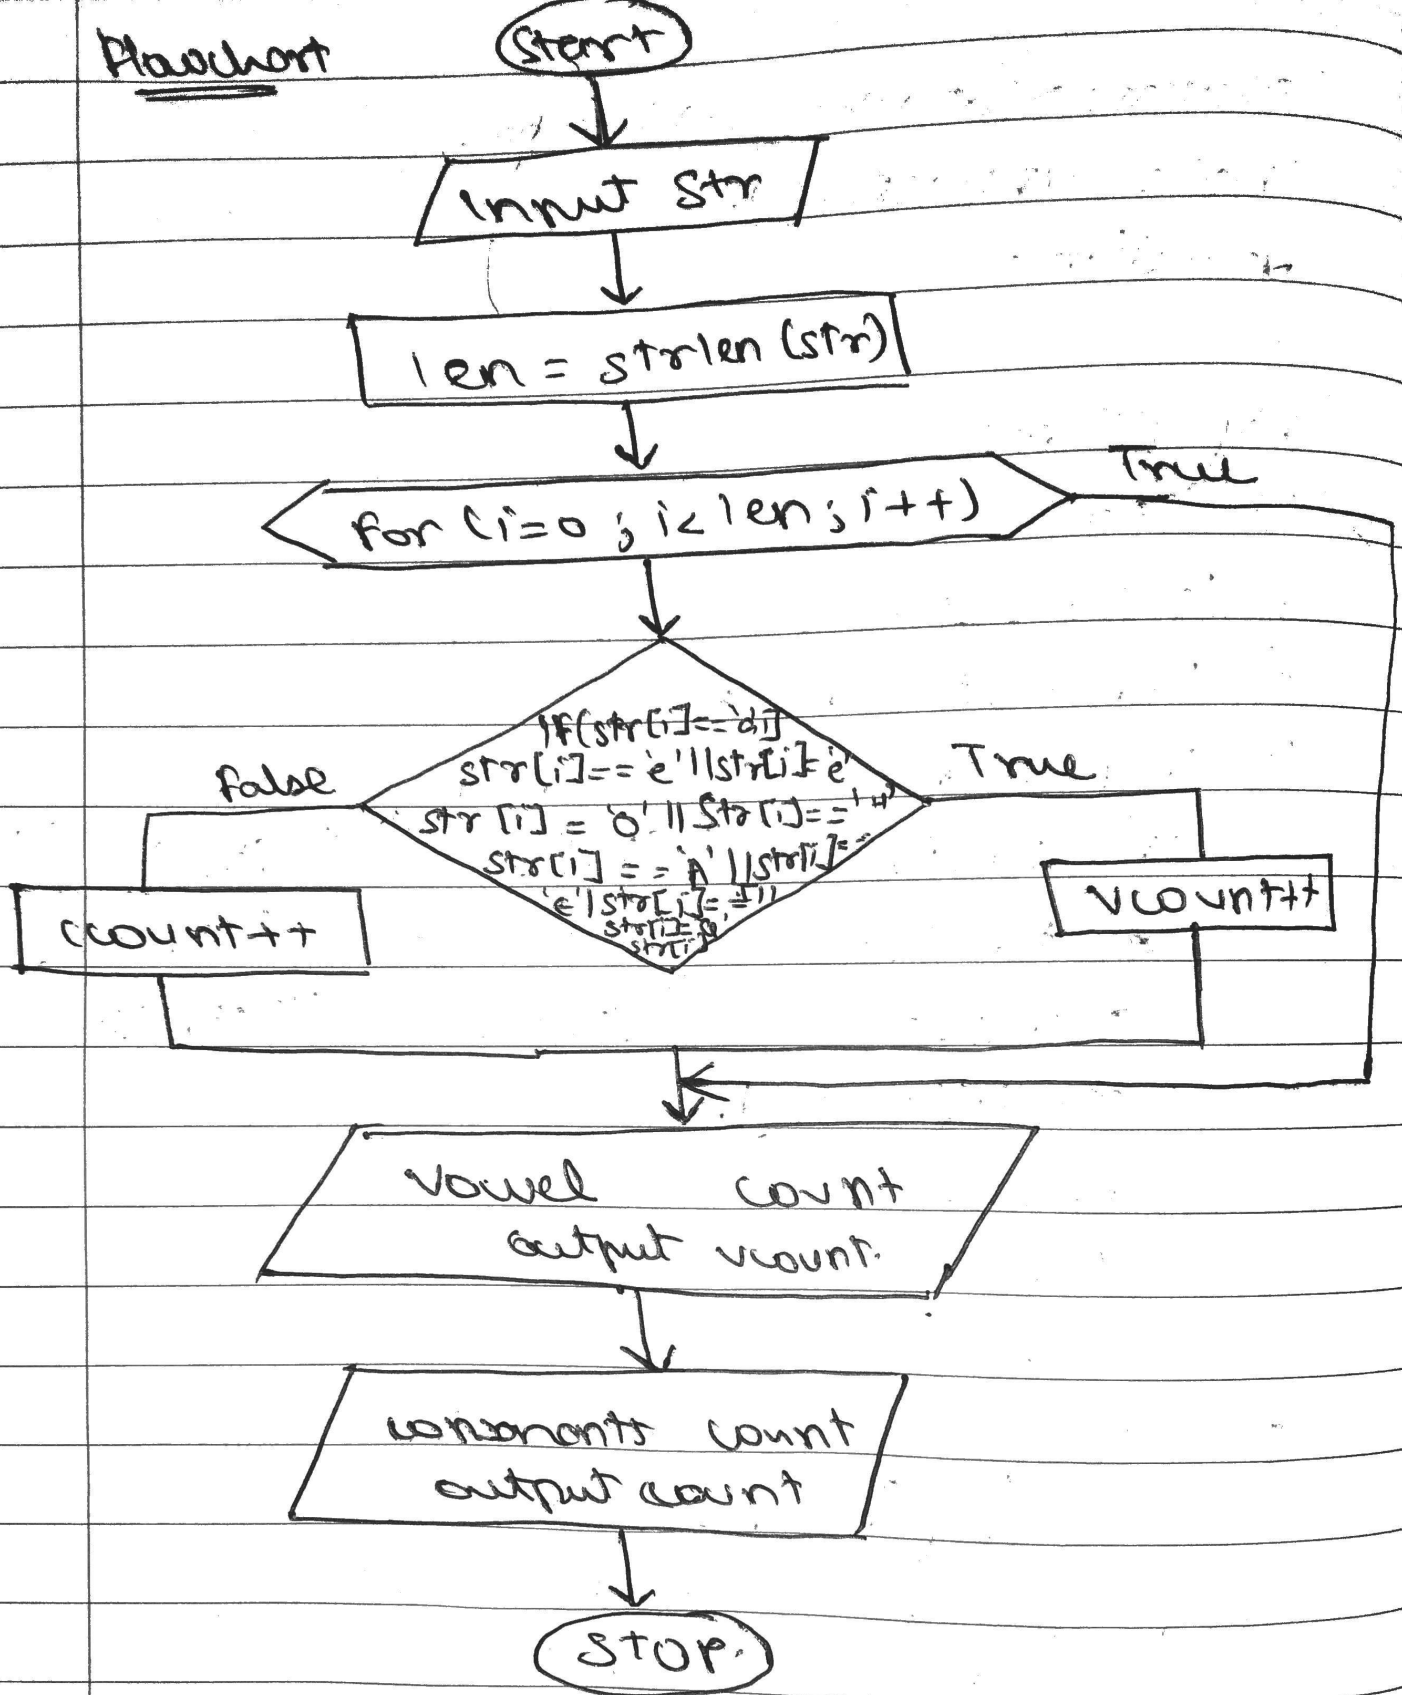 Flowchart
Start
input str
len = strlen (str)
for (i=0 ; i< len ; i++)
True
if(str[i]=='a'||
str[i]=='e'||str[i]='e'
str [i] = 'o' || str [i]=='u'
str[i] == 'A' ||str[i]==
'E'|str[i]=='I'||
str[i]=
str[i]
false
True
ccount++
vcount++
vowel count
output vcount.
consonants count
output ccount
STOP.